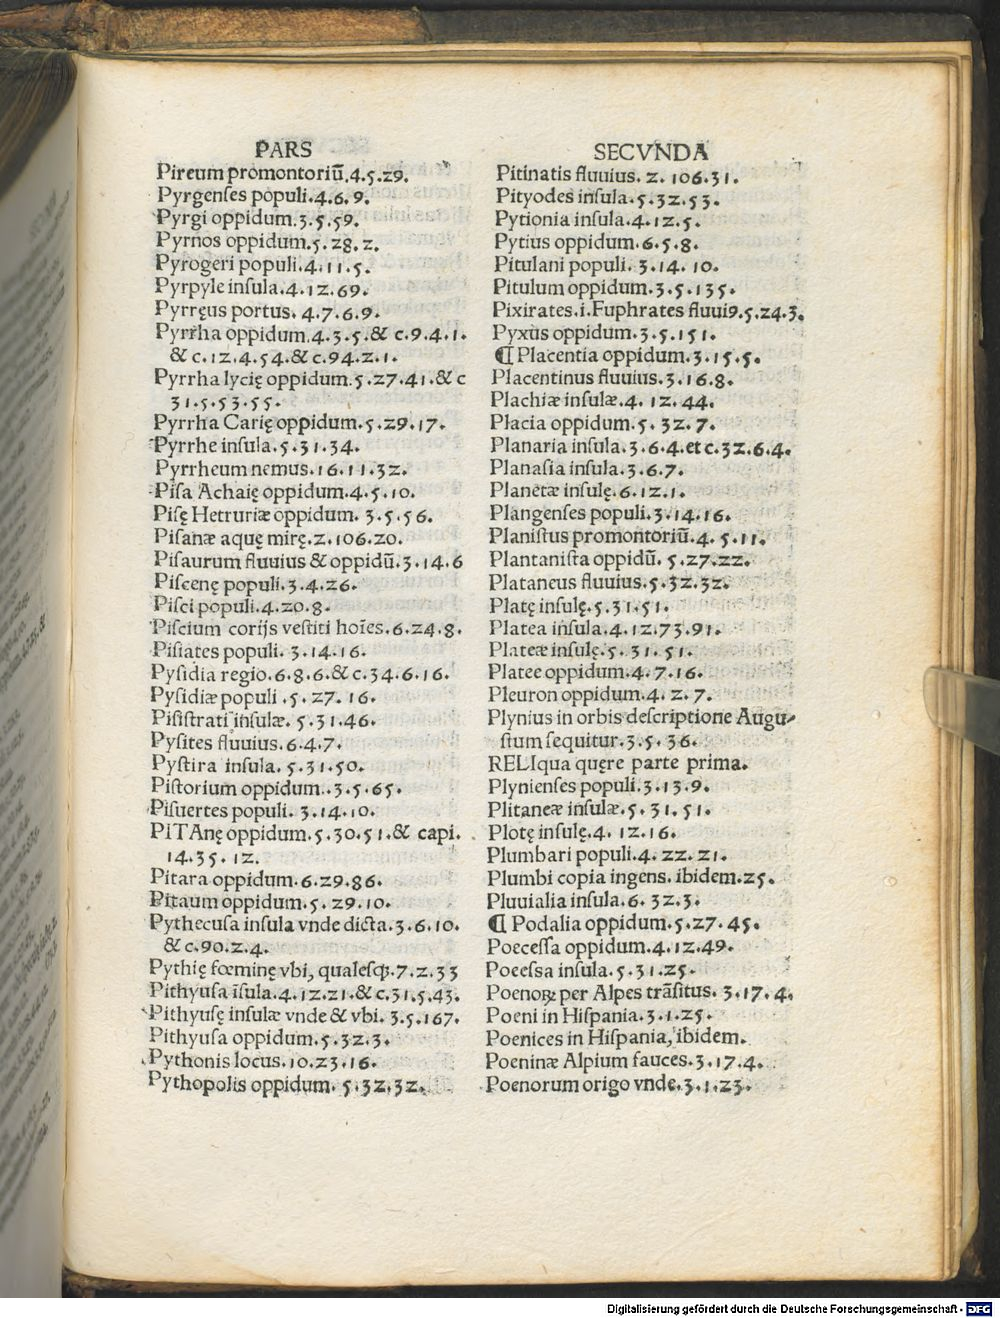 PARS
Pireum promontoriū.4.5.29.
Pyrgenſes populi.4.6.9.
Pyrgi oppidum.3.5.59.
Pyrnos oppidum.5.28.2.
Pyrogeri populi.4.11.5.
Pyrpyle inſula.4.12.69.
Pyrręus portus.4.7.6.9.
Pyrrha oppidum.4.3.5.& c.9.4.1.
& c.12.4.54.& c.94.2.1.
Pyrrha lycię oppidum.5.27.41.& c
31.5.53.55.
Pyrrha Carię oppidum.5.29.17.
Pyrrhe inſula.5.31.34.
Pyrrheum nemus.16.11.32.
Piſa Achaię oppidum.4.5.10.
Piſę Hetruriæ oppidum. 3.5.56.
Piſanæ aquę mirę.2.106.20.
Piſaurum fluuius & oppidū.3.14.6
Piſcenę populi.3.4.26.
Piſci populi.4.20.8.
Piſcium corijs veſtiti hoīes.6.24.8.
Piſiates populi. 3.14.16.
Pyſidia regio.6.8.6.& c.34.6.16.
Pyſidiæ populi.5.27.16.
Piſiſtrati inſulæ. 5.31.46.
Pyſites fluuius.6.4.7.
Pyſtira inſula. 5.31.50.
Piſtorium oppidum..3.5.65.
Piſuertes populi. 3.14.10.
PiTAnę oppidum.5.30.51.& capi.
14.35.12.
Pitara oppidum.6.29.86.
Pitaum oppidum.5.29.10.
Pythecuſa inſula vnde dicta.3.6.10.
& c.90.2.4.
Pythię fœminę vbi, qualeſqꝫ.7.2.33
Pithyuſa īſula.4.12.21.& c.31.5.43.
Pithyuſę inſulæ vnde & vbi. 3.5.167.
Pithyuſa oppidum.5.32.3.
Pythonis locus.10.23.16.
Pythopolis oppidum. 5.32.32.
SECVNDA
Pitinatis fluuius. 2.106.31.
Pityodes inſula.5.32.53.
Pytionia inſula.4.12.5.
Pytius oppidum.6.5.8.
Pitulani populi. 3.14.10.
Pitulum oppidum.3.5.135.
Pixirates.i.Fuphrates fluui9.5.24.3.
Pyxus oppidum.3.5.151.
¶ Placentia oppidum.3.15.5.
Placentinus fluuius.3.16.8.
Plachiæ inſulæ.4.12.44.
Placia oppidum.5.32.7.
Planaria inſula.3.6.4.et c.32.6.4.
Planaſia inſula.3.6.7.
Planetæ inſulę.6.12.1.
Plangenſes populi.3.14.16.
Planiſtus promontoriū.4.5.11.
Plantaniſta oppidū. 5.27.22.
Plataneus fluuius.5.32.32.
Platę inſulę.5.31.51.
Platea inſula.4.12.73.91.
Plateæ inſulę.5.31.51.
Platee oppidum.4.7.16.
Pleuron oppidum.4.2.7.
Plynius in orbis deſcriptione Augu⸗
ſtum ſequitur.3.5.36.
RELIqua quęre parte prima.
Plynienſes populi.3.13.9.
Plitaneæ inſulæ.5.31.51.
Plotę inſulę.4.12.16.
Plumbari populi.4.22.21.
Plumbi copia ingens. ibidem.25.
Pluuialia inſula.6.32.3.
¶ Podalia oppidum.5.27.45.
Poeceſſa oppidum.4.12.49.
Poeeſsa inſula.5.31.25.
Poenoꝝ per Alpes trāſitus. 3.17.4.
Poeni in Hiſpania.3.1.25.
Poenices in Hiſpania, ibidem.
Poeninæ Alpium fauces.3.17.4.
Poenorum origo vnde.3.1.23.
Digitalisierung gefördert durch die Deutsche Forschungsgemeinschaft - DFG